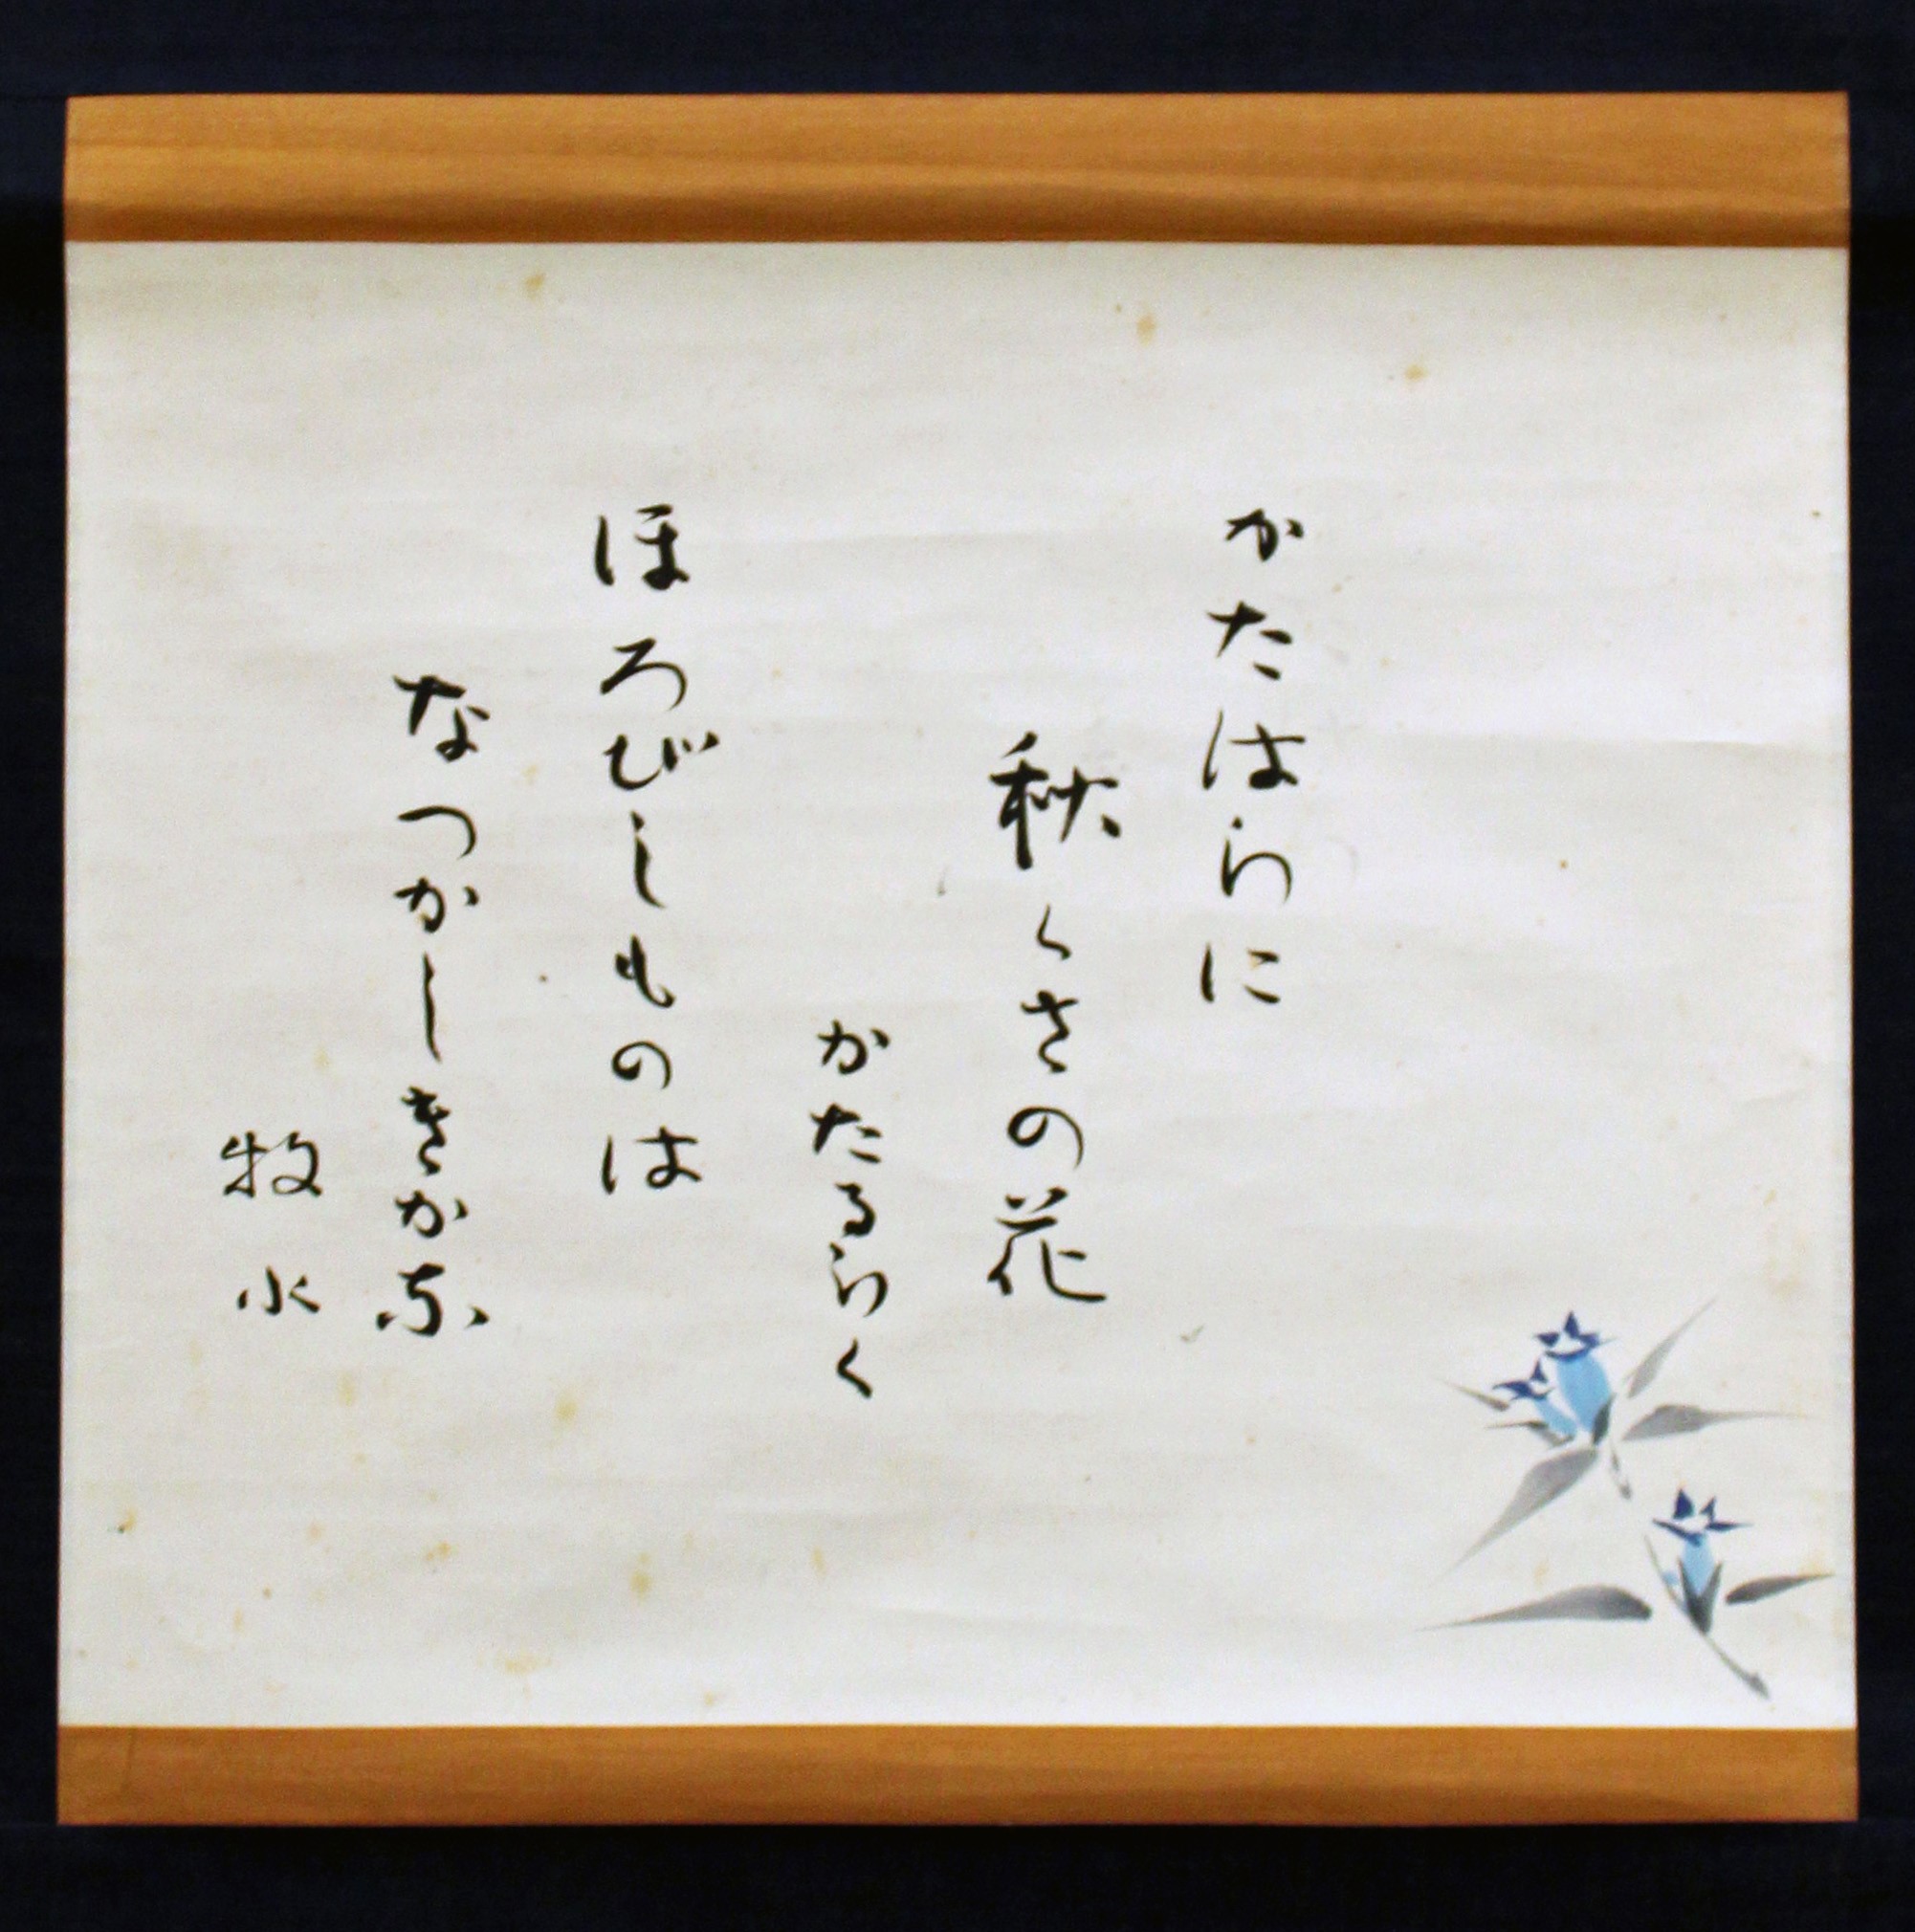 かたはらに
秋くさの花
かたるらく
ほろびしものは
なつかしきかな
牧水